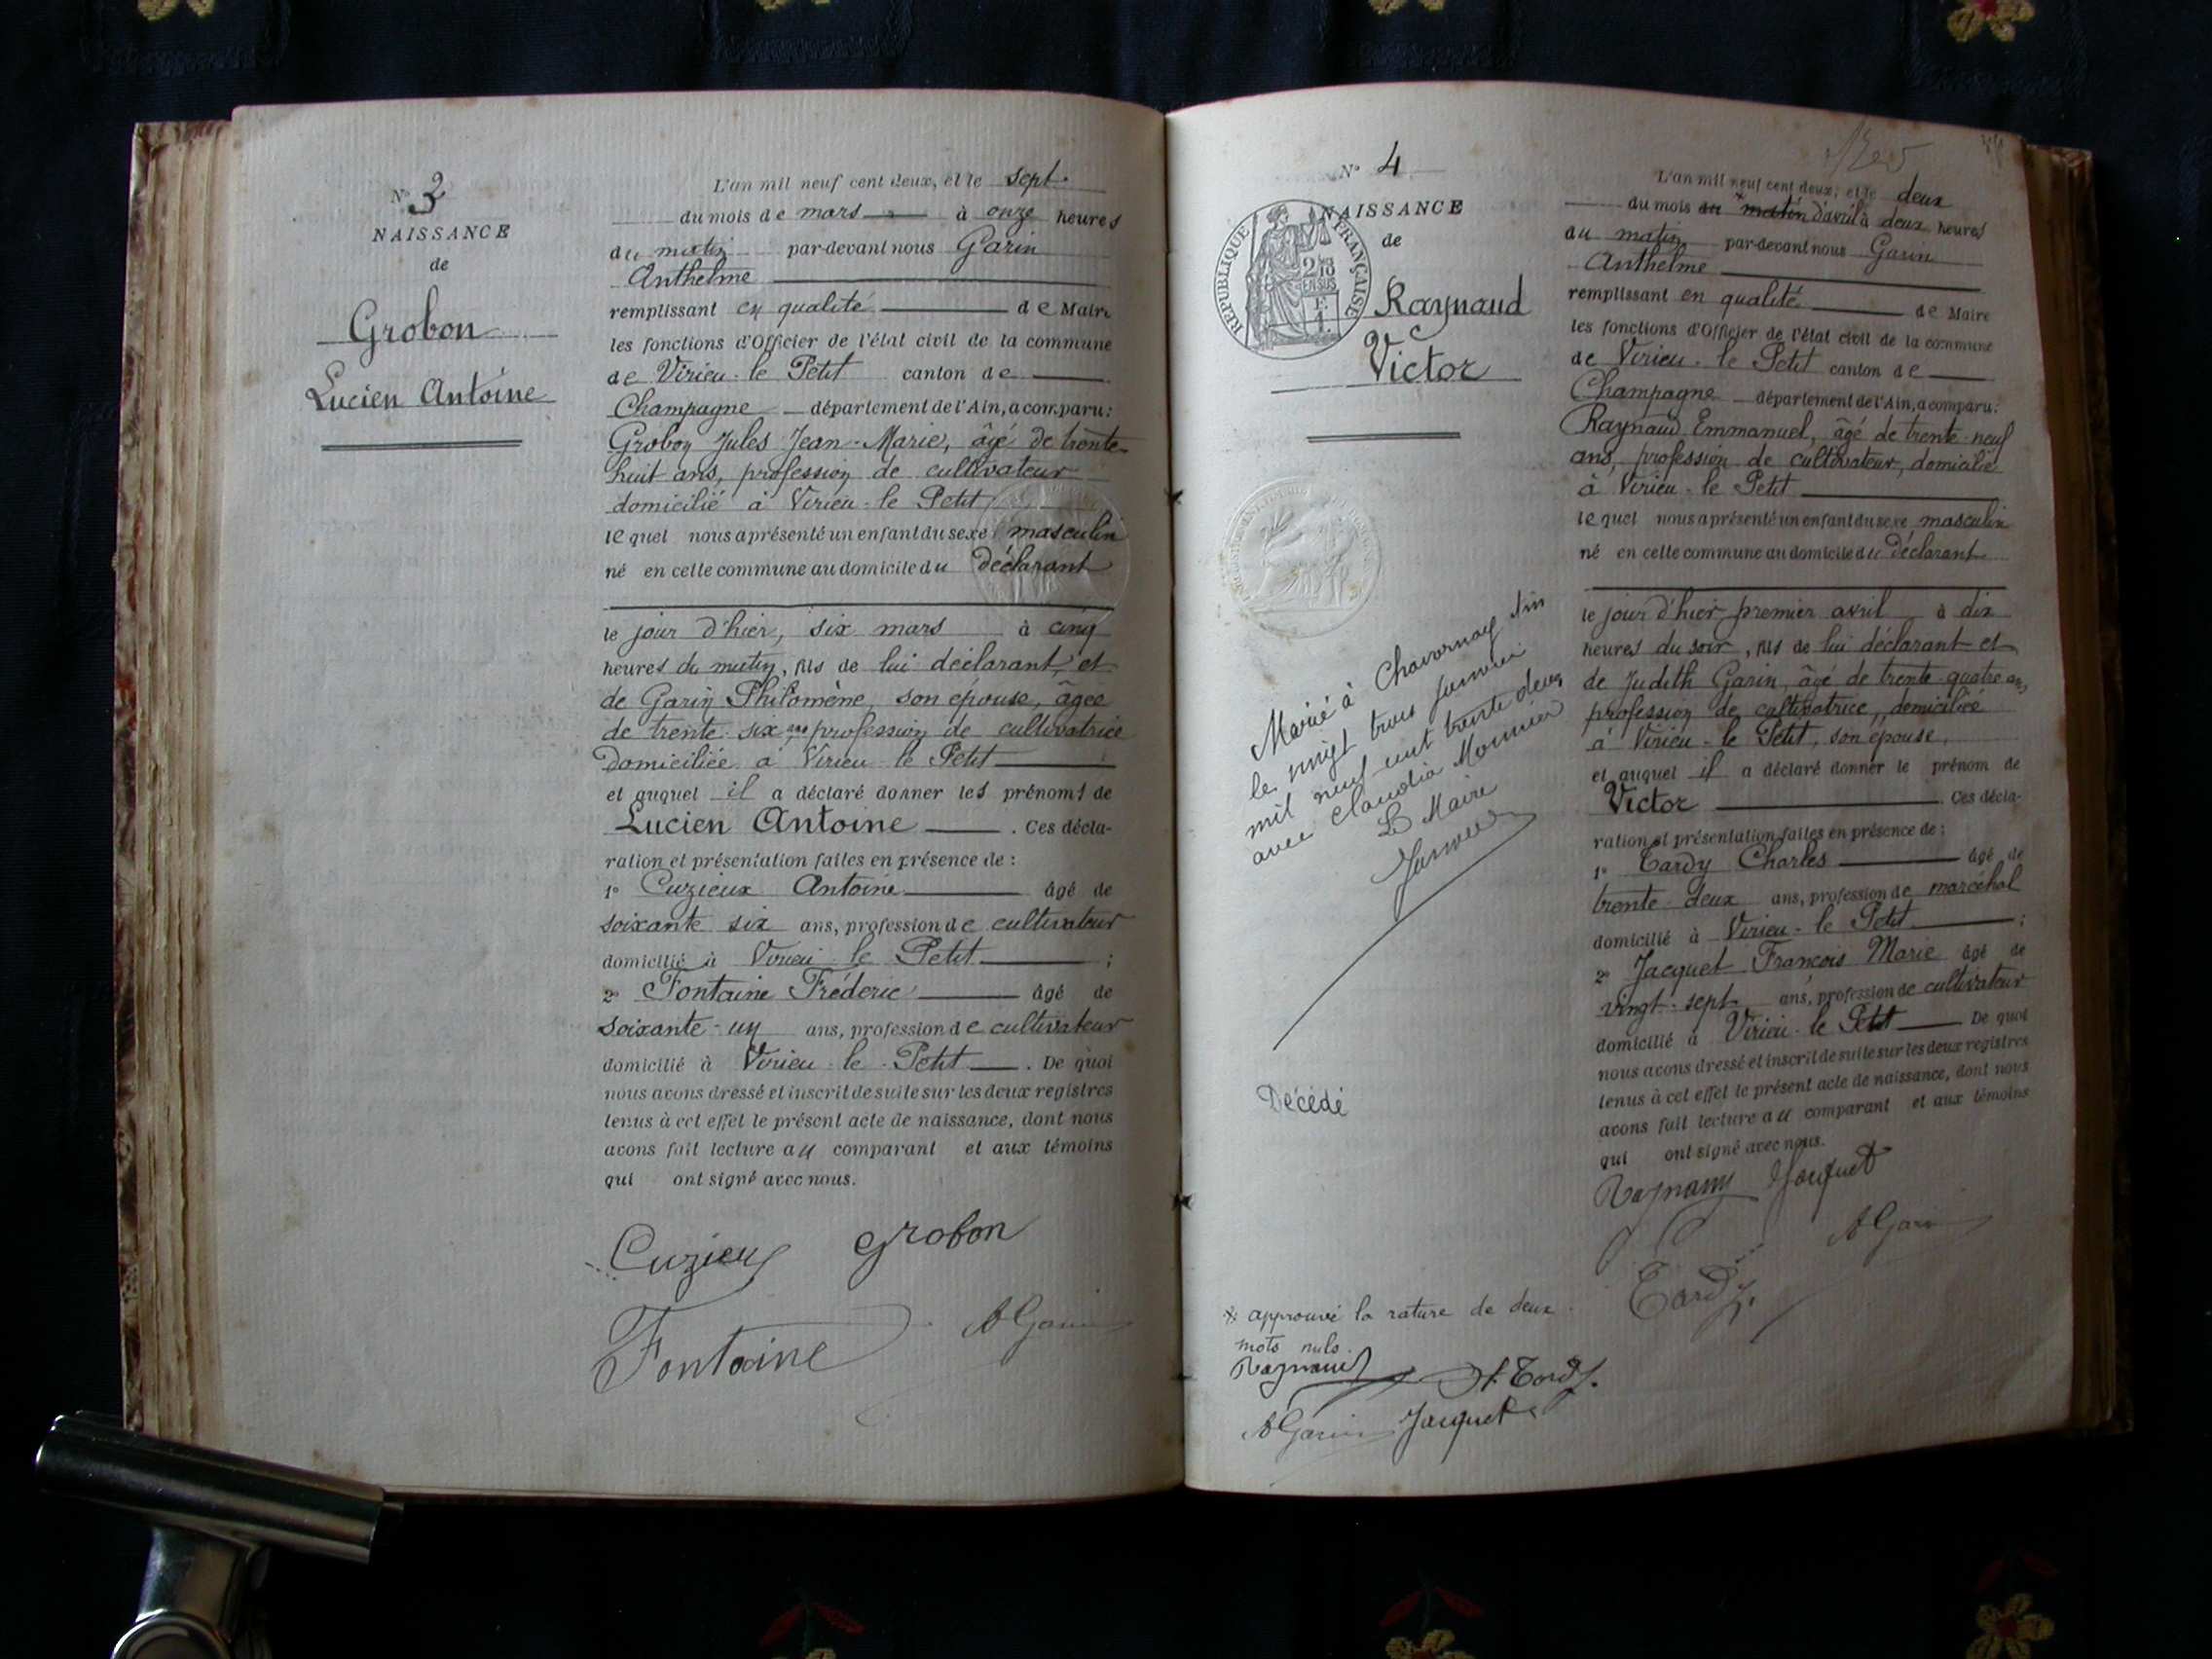 N° 3
NAISSANCE
de
Grobon
Lucien Antoine
L'an mil neuf cent deux, et le sept
du mois de mars à onze heures
du matin par-devant nous Garin
Anthelme
remplissant en qualité de Maire
les fonctions d'Officier de l'état civil de la commune
de Virieu-le Petit canton de
Champagne département de l'Ain, a comparu:
Grobon Jules Jean-Marie, âgé de trente
huit ans, profession de cultivateur
domicilié à Virieu-le Petit
lequel nous a présenté un enfant du sexe masculin
né en cette commune au domicile du déclarant
le jour d'hier, six mars à cinq
heures du matin, fils de lui déclarant, et
de Garin Philomène, son épouse, âgée
de trente six ans profession de cultivatrice
Domiciliée à Virieu le Petit
et auquel il a déclaré donner les prénoms de
Lucien Antoine. Ces décla-
ration et présentation faites en présence de:
1° Cuzieux Antoine âgé de
soixante six ans, profession de cultivateur
domicilié à Virieu le Petit;
2° Fontaine Fréderic âgé de
soixante-un ans, profession de cultivateur
domicilié à Virieu-le-Petit. De quoi
nous avons dressé et inscrit de suite sur les deux registres
tenus à cet effet le présent acte de naissance, dont nous
avons fait lecture au comparant et aux témoins
qui ont signé avec nous.
Cuzieux Grobon
Fontaine A Garin
N° 4
NAISSANCE
de
REPUBLIQUE FRANÇAISE
2/10
EN SUS
Raynaud
Victor
L'an mil neuf cent deux, et le deux
du mois du matin * d'avril à deux heures
du matin par-devant nous Garin
Anthelme
remplissant en qualité de Maire
les fonctions d'Officier de l'état civil de la commune
de Virieu-le Petit canton de
Champagne département de l'Ain, a comparu:
Raynaud Emmanuel, âgé de trente-neuf
ans, profession de cultivateur, domicilié
à Virieu-le Petit
lequel nous a présenté un enfant du sexe masculin
né en cette commune au domicile du déclarant
le jour d'hier premier avril à dix
heures du soir, fils de lui déclarant et
de Judith Garin, âgé de trente-quatre ans,
profession de cultivatrice, domiciliée
à Virieu-le Petit, son épouse,
et auquel il a déclaré donner le prénom de
Victor. Ces décla-
ration et présentation faites en présence de:
1° Tardy Charles âgé de
trente-deux ans, profession de maréchal
domicilié à Virieu-le Petit;
2° Jacquet François Marie âgé de
vingt-sept ans, profession de cultivateur
domicilié à Virieu-le Petit De quoi
nous avons dressé et inscrit de suite sur les deux registres
tenus à cet effet le présent acte de naissance, dont nous
avons fait lecture au comparant et aux témoins
qui ont signé avec nous.
Raynaud Jacquet
A Garin
Tardy.
Marié à Chavornay Ain
le vingt trois janvier
mil neuf cent trente deux
avec Claudia Monnier
Le Maire
Décédé
* approuvé la rature de deux
mots nuls.
Raynaud Ch. Tardy.
A Garin Jacquet